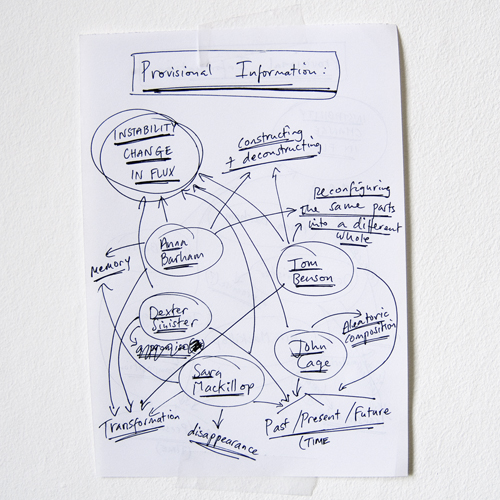 Provisional Information:
INSTABILITY
CHANGE
IN FLUX
Constructing
+ deconstructing
Reconfiguring
the same parts
into a different
whole
Anna
Barham
memory
Tom
Benson
Dexter
Sinister
Aleatoric
composition
John
Cage
Sara
Mackillop
Transformation
disappearance
Past/Present/Future
(TIME